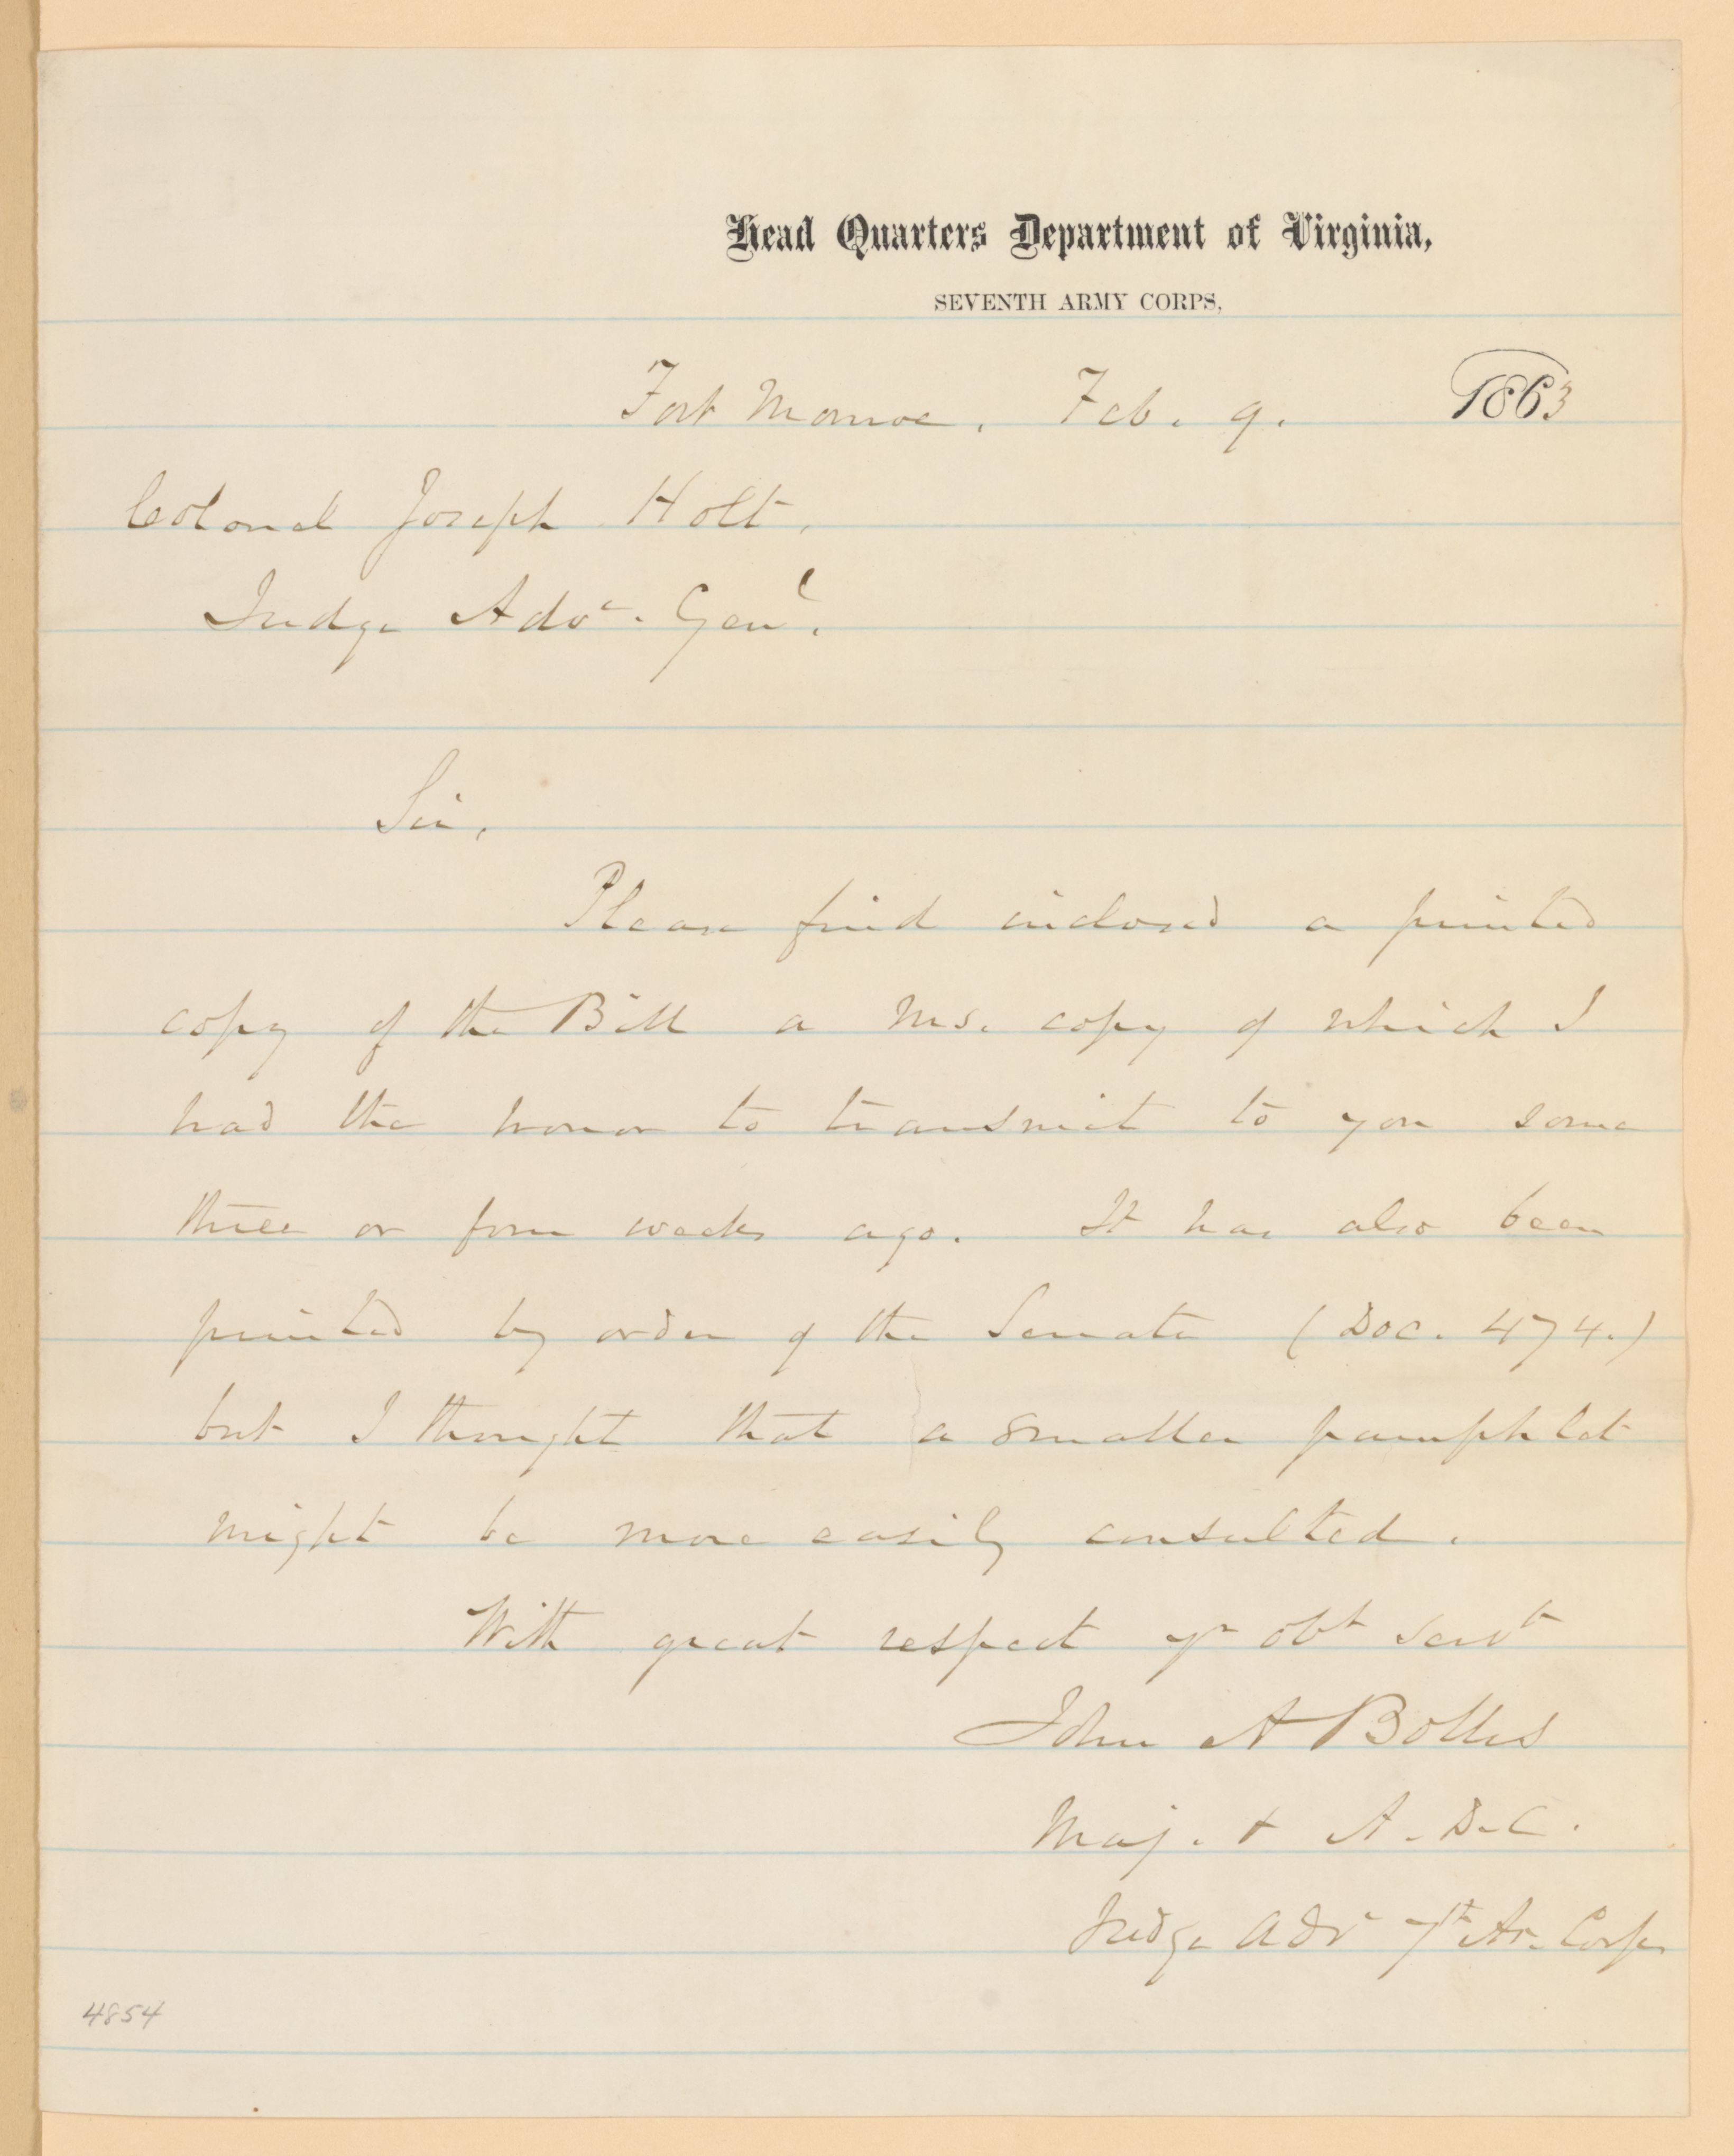 Head Quarters Department of Virginia,
SEVENTH ARMY CORPS,
Fort Monroe, Feb. 9. 1863
Colonel Joseph Holt,
Judge Advc. Genl.
Sir,
Please find inclosed a printed
copy of the Bill a Ms. copy of which I
had the honor to transmit to you some
three or four weeks ago. It has also been
printed by order of the Senate (Doc. 474.)
but I thought that a smaller pamphlet
might be more easily consulted.
With great respect yr obt servt
John A Bolles
Maj. & A.D.C.
Judge Adv 7th Ar. Corps
4854